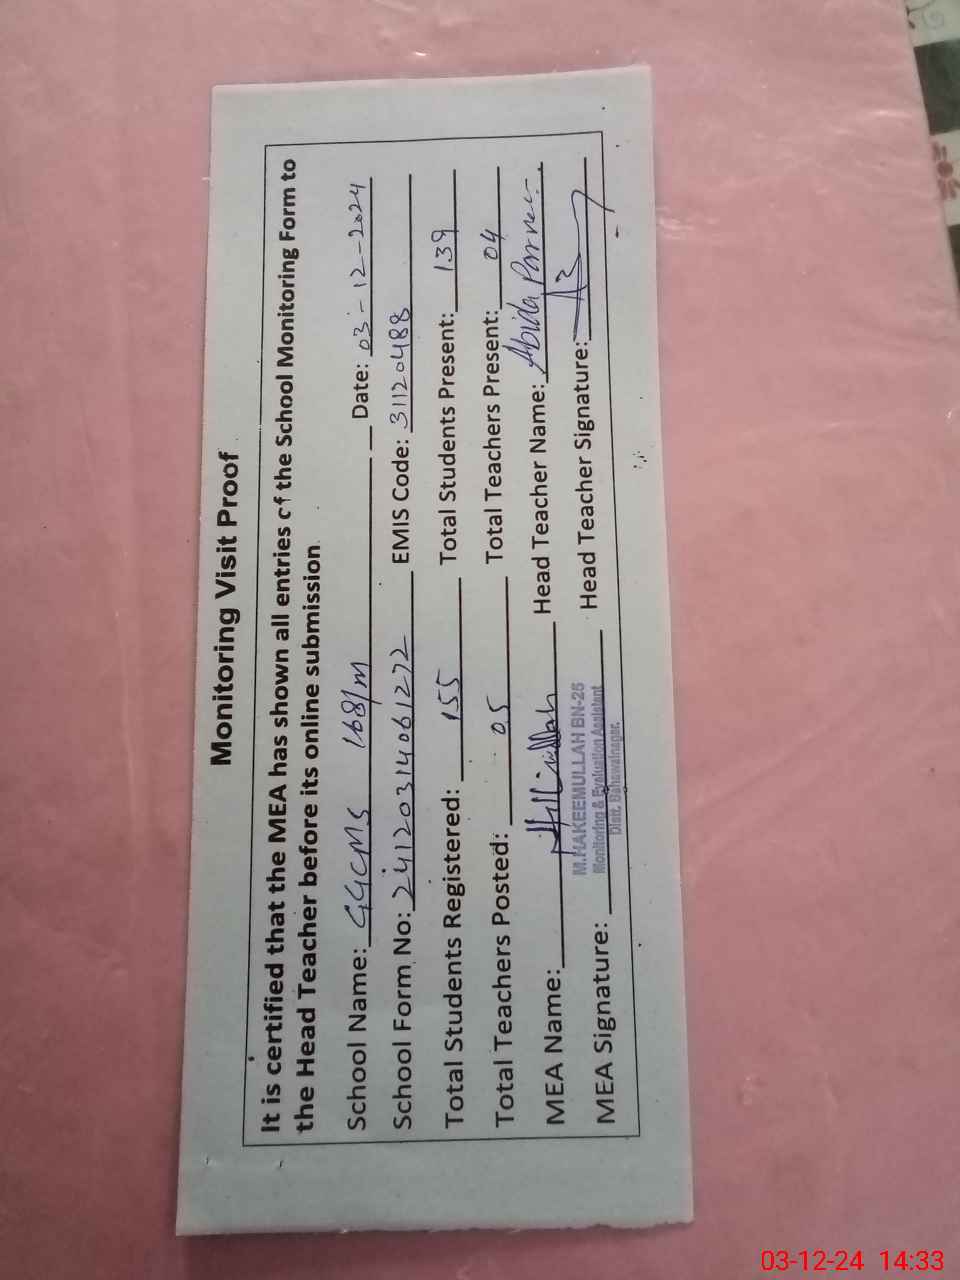 Monitoring Visit Proof
It is certified that the MEA has shown all entries of the School Monitoring Form to
the Head Teacher before its online submission.
School Name: GGCMS 168/m Date: 03-12-2024
School Form No: 241203141061272 EMIS Code: 31120488
Total Students Registered: 155 Total Students Present: 139
Total Teachers Posted: 05 Total Teachers Present: 04
MEA Name: Head Teacher Name: Abida Parveen
M.HAKEEMULLAH BN-25
MEA Signature: Head Teacher Signature:
Monitoring & Evaluation Assistant
Distt. Bahawalnagar.
03-12-24 14:33